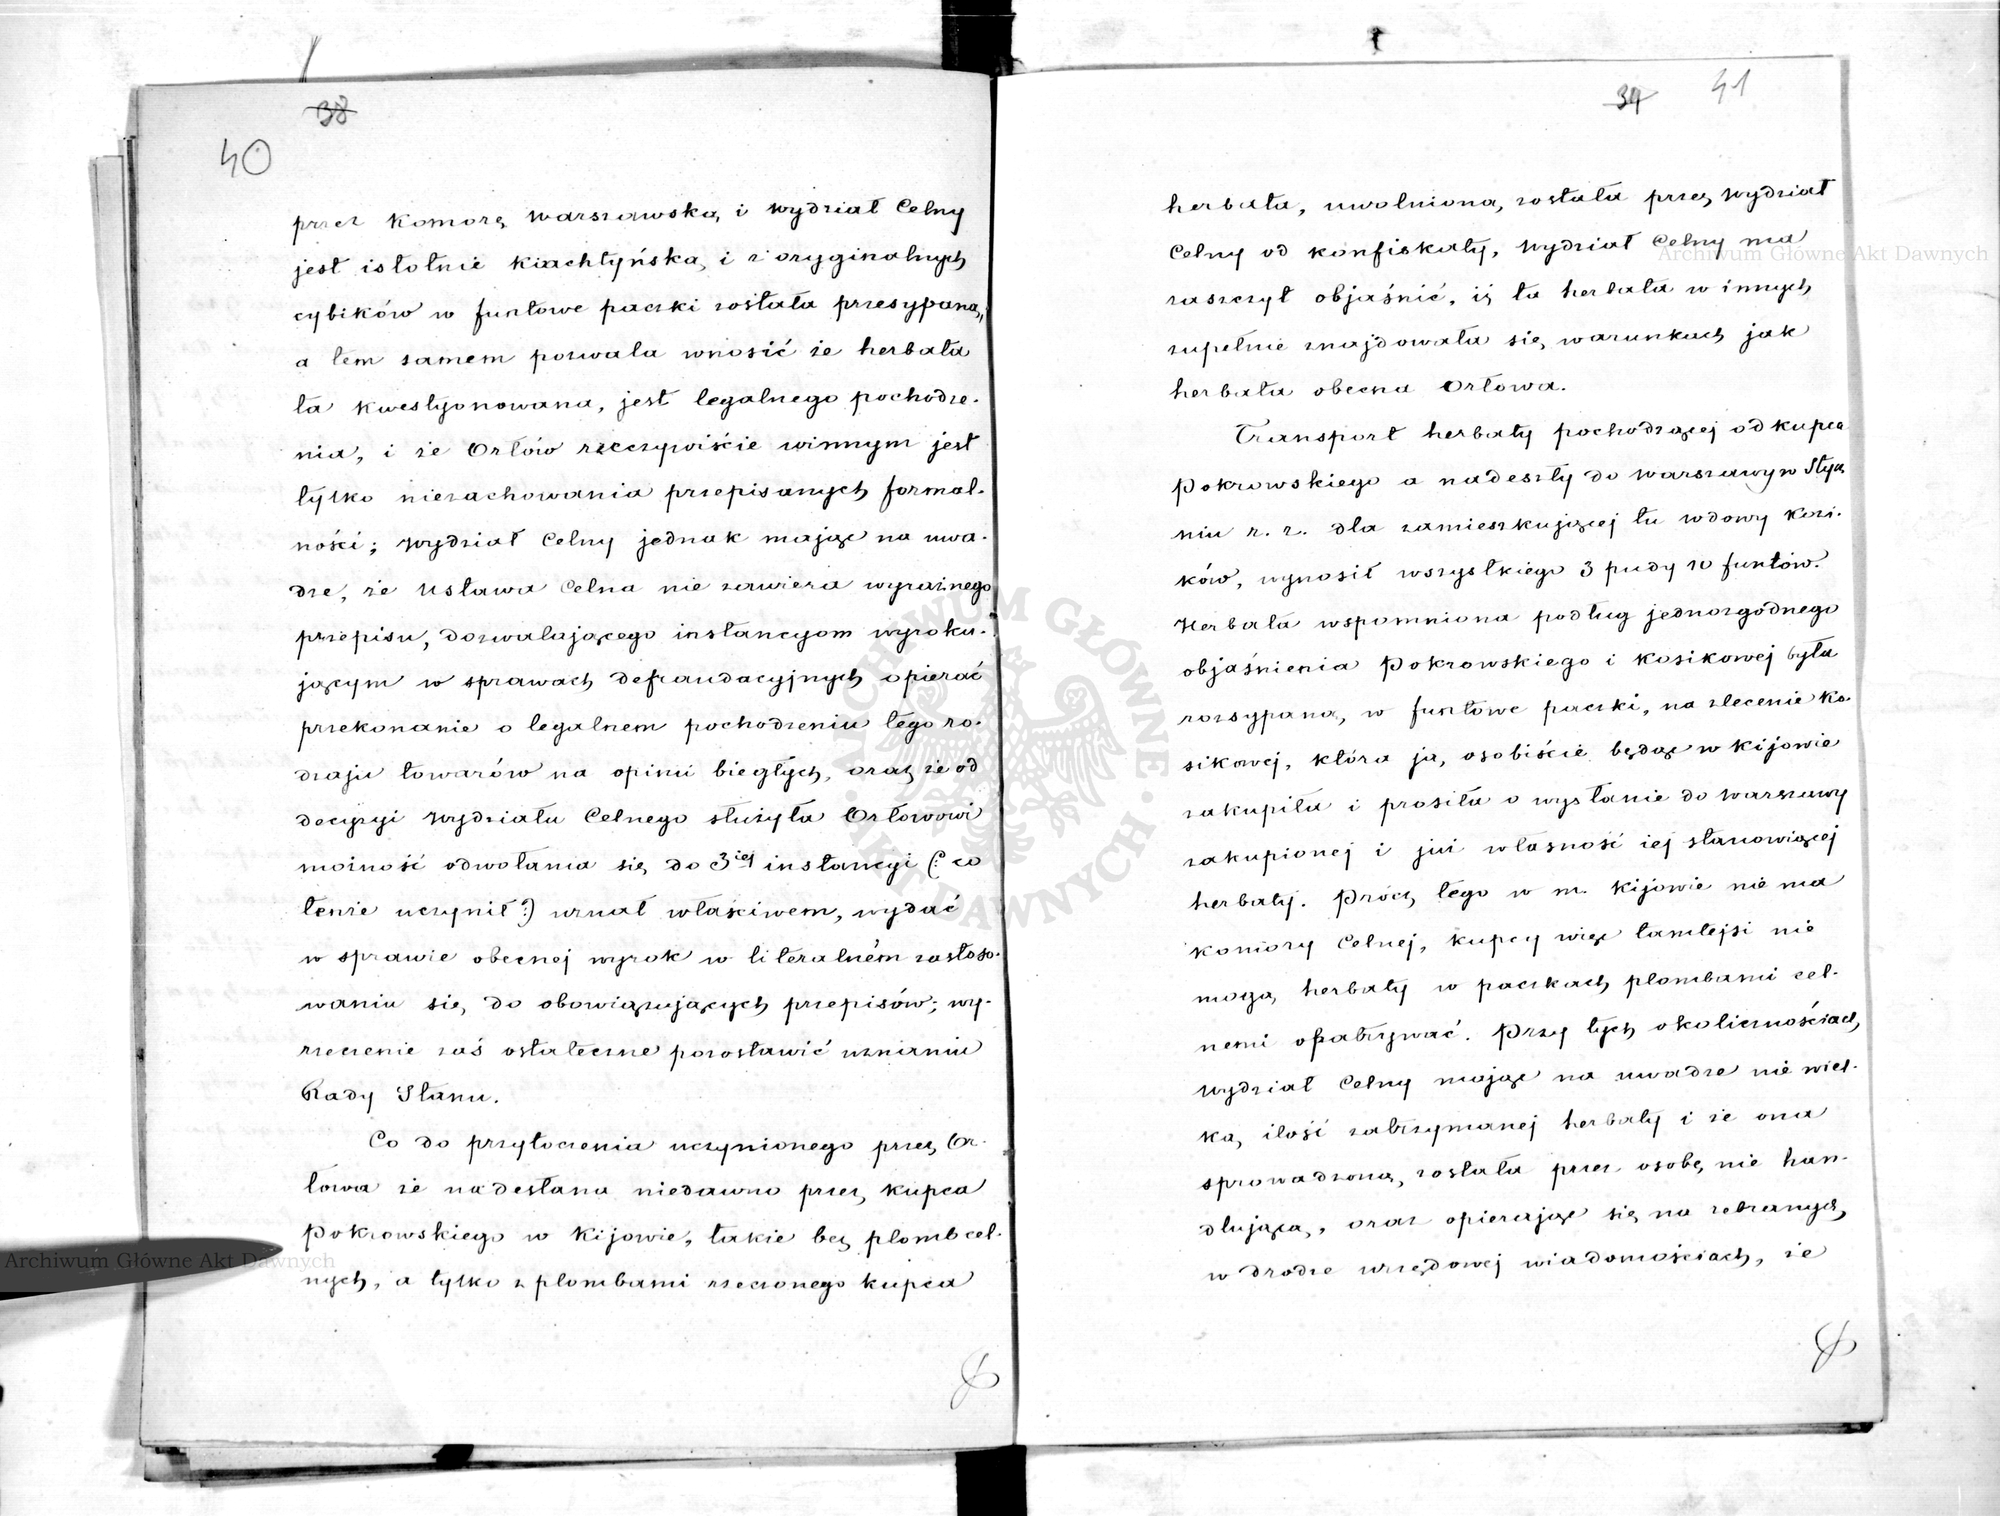 38
40
przez Komorę Warszawską i Wydział Celny
jest istotnie kiachtyńską i z oryginalnych
cybików w funtowe paczki została przesypaną,
a tem samem pozwala wnosić że herbata
ta kwestyonowana, jest legalnego pochodze-
nia, i że Orłów rzeczywiście winnym jest
tylko niezachowania przepisanych formal-
ności; Wydział Celny jednak mając na uwa-
dze, że Ustawa Celna nie zawiera wyraźnego
przepisu, dozwalającego instancyom wyroku-
jącym w sprawach defraudacyjnych opierać
przekonanie o legalnem pochodzeniu tego ro-
dzaju towarów na opinii biegłych, oraz że od
decyzyi Wydziału Celnego służyła Orłowowi
możność odwołania się do 3iej instancyi (: co
tenże uczynił :) uznał właściwem, wydać
w sprawie obecnej wyrok w literalném zastoso-
waniu się do obowiązujących przepisów; wy-
rzeczenie zaś ostateczne pozostawić uznaniu
Rady Stanu.
Co do przytoczenia uczynionego przez Or-
łowa że nadesłana niedawno przez kupca
Pokrowskiego w Kijowie, także bez plomb cel-
nych, a tylko z plombami rzeczonego kupca
34 41
herbata, uwolnioną została przez Wydział
Celny od konfiskaty, Wydział Celny ma
zaszczyt objaśnić, iż ta herbata w innych
zupełnie znajdowała się warunkach jak
herbata obecna Orłowa.
Transport herbaty pochodzącej od kupca
Pokrowskiego a nadeszły do Warszawy w Stycz
niu r. z. dla zamieszkującej tu wdowy Kozi-
ków, wynosił wszystkiego 3 pudy 10 funtów.
Herbata wspomniona podług jednozgodnego
objaśnienia Pokrowskiego i Kosikowej była
rozsypaną w funtowe paczki, na zlecenie Ko-
sikowej, która ją osobiście będąc w Kijowie
zakupiła i prosiła o wysłanie do Warszawy
zakupionej i już własność iej stanowiącej
herbaty. Prócz tego w m. Kijowie nie ma
komory Celnej, kupcy więc tamtejsi nie
mogą herbaty w paczkach plombami cel-
nemi opatrywać. Przy tych okolicznościach,
Wydział Celny mając na uwadze nie wiel-
ką ilość zatrzymanej herbaty i że ona
sprowadzoną została przez osobę nie han-
dlującą, oraz opierając się na zebranych,
w drodze urzędowej wiadomościach, że
ARCHIWUM GŁÓWNE AKT DAWNYCH
Archiwum Główne Akt Dawnych
Archiwum Główne Akt Dawnych